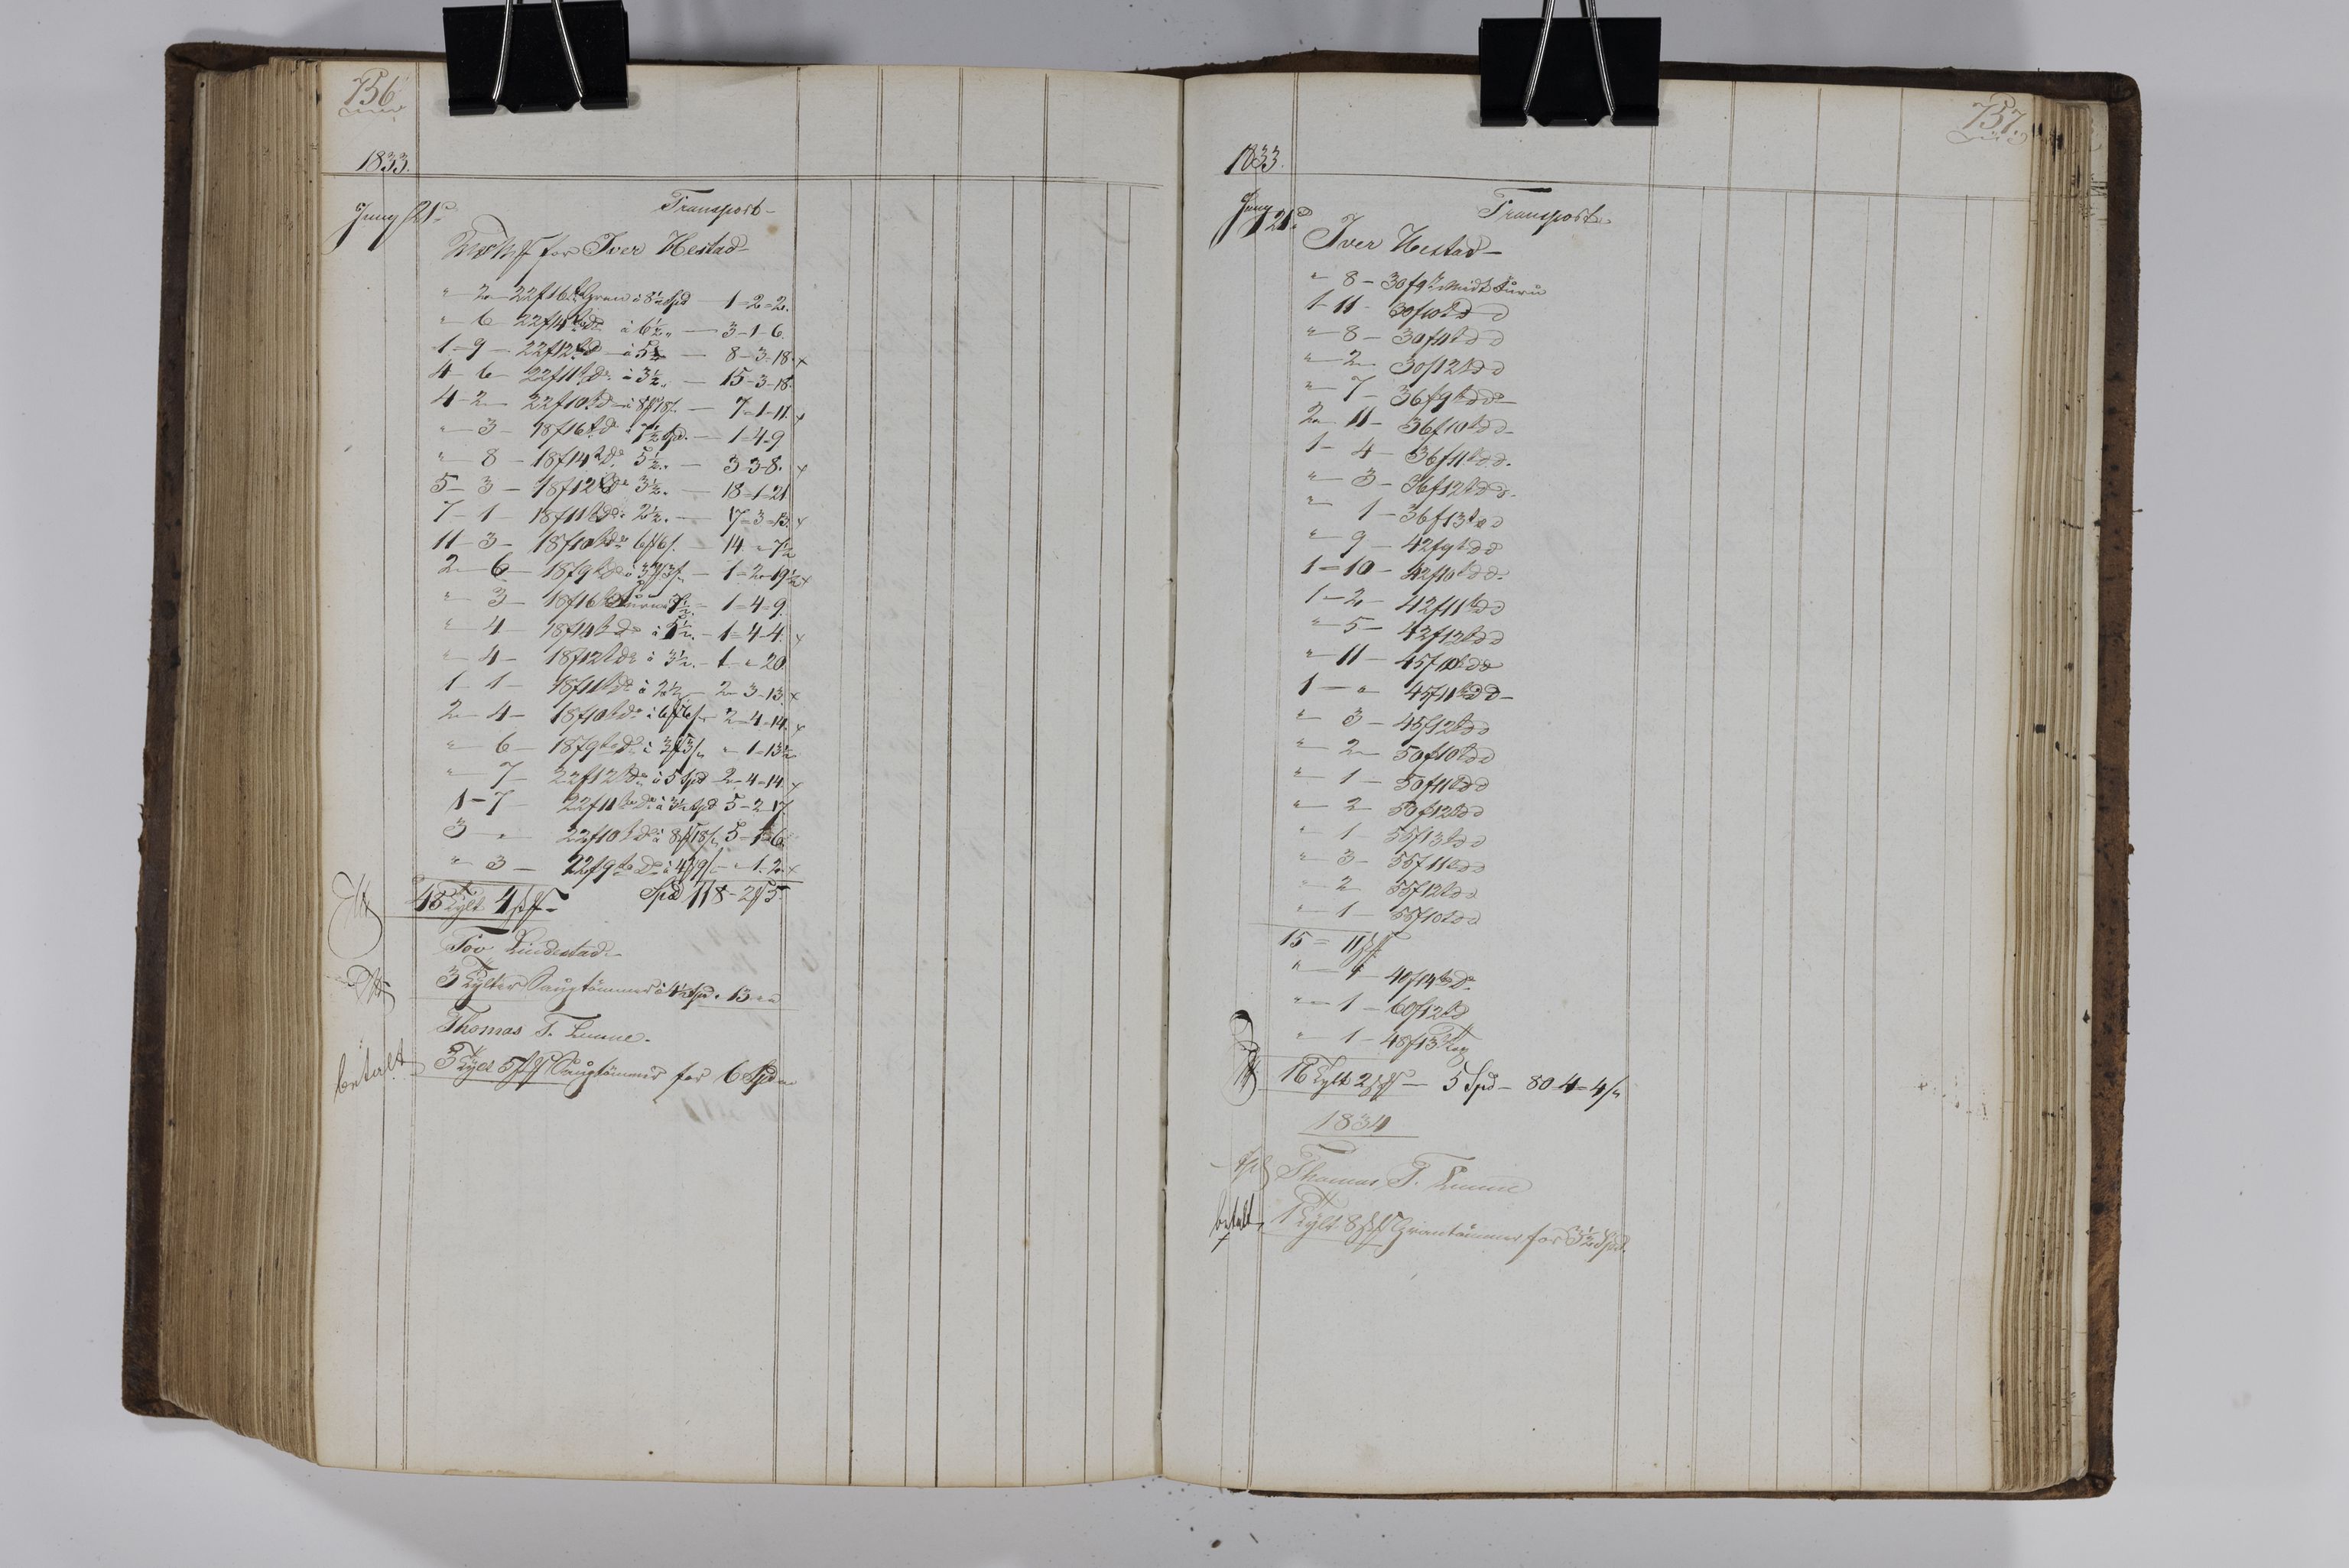 736
1833.
Juny 21de
Transport
for Iver Hestad
" 2 - 22f 16t Gran à 8½ Spd - 1-2-2.
" 6 - 22f 14t do à 6½ " - 3-1-6.
1-9 - 22f 12t do à 5 - 8-3-18 x
4-6 - 22f 11t do à 3½ " - 15-3-18.
4-2 - 22f 10t do à 8 18/ - 7-1-11. x
" 3 - 18f 16t do à 7½ Spd. - 1-4-9
" 8 - 18f 14t do 5½ " - 3-3-8. x
5-3 - 18f 12t do 3½ " - 18-1-21
7-1 - 18f 11t do 2½ " - 17-3-13. x
11-3 - 18f 10t do 6 6/ - 14 " 7½
2-6 - 18f 9t do à 3 3/ - 1-2-19½ x
" 3 - 18f 16t Furu 7½ - 1-4-9.
" 4 - 18f 14t do à 5½ - 1-4-4. x
" 4 - 18f 12t do à 3½ - 1 - " 20.
1-1 - 18f 11t do à 2½ - 2-3-13 x
2-4 - 18f 10t do à 6 6/ - 2-4-14. x
" 6 - 18f 9t do à 3 3/ - " 1-13½
" 7 - 22f 12t do à 5 Spd 2-4-14 x
1-7 - 22f 11t do à 3½ Spd 5-2-17.
3 " 22f 10t do à 8 18/ 5-1-6.
" 3 - 22f 9t do à 4 9/ - " 1.2 x
45 Tylt 4 Spd 118-2-5
Tov Lindestad
3 Tylter Saugtömmer à 4½ Spd. 13 "
Thomas T. Lunne.
betalt 3 Tylt 5 Saugtömmer for 6 Spd
737.
1833.
Juny 21de
Transport
Iver Hestad
" 8 - 30f 9t Midt Furu
1-11 - 30f 10t d d
" 8 - 30f 11t d d
" 2 - 30f 12t d d
" 7 - 36f 9t d d
2-11 - 36f 10t d d
1-4 - 36f 11t d d.
" 3 - 36f 12t d d.
" 1 - 36f 13t d d
" 9 - 42f 9t d d
1-10 - 42f 10t d d.
1-2 - 42f 11t d d
" 5 - 42f 12t d d
" 11 - 45f 10t d d
1 - " 45f 11t d d
" 3 - 45f 12t d d
" 2 - 50f 10t d d
" 1 - 50f 11t d d
" 2 - 50f 12t d d
" 1 - 55f 13t d d
" 3 - 55f 11t d d
" 2 - 55f 12t d d
" 1 - 55f 10t d d
15 - 11
" 1 - 40f 14t do
" 1 - 60f 12t d
" 1 - 48f 13t
16 Tylt 2 - 5 Spd - 80-4-4/
1834
Thomas T. Lunne
betalt 1 Tylt 8 Grantömmer for 3½ Spd.